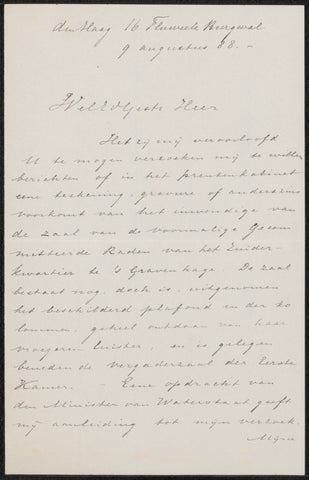 den Haag 16 Fluweele Burgwal
9 augustus 88. -
WelEdGestr Heer
Het zij mij veroorloofd
U te mogen verzoeken mij te willen
berichten of in het prentenkabinet
eene teekening, gravure of anderszins
voorkomt van het inwendige van
de zaal van de voormalige Gecom
mitteerde Raden van het Zuider-
kwartier te 's Gravenhage. De zaal
bestaat nog, doch is, uitgenomen
het beschilderd plafond in der
geheel ontdaan van haar
vroegeren luister, en is gelegen
beneden de vergaderzaal der Eerste
Kamer. - Eene opdracht van
den Minister van Waterstaat geeft
mij aanleiding tot mijn verzoek.
Mijne